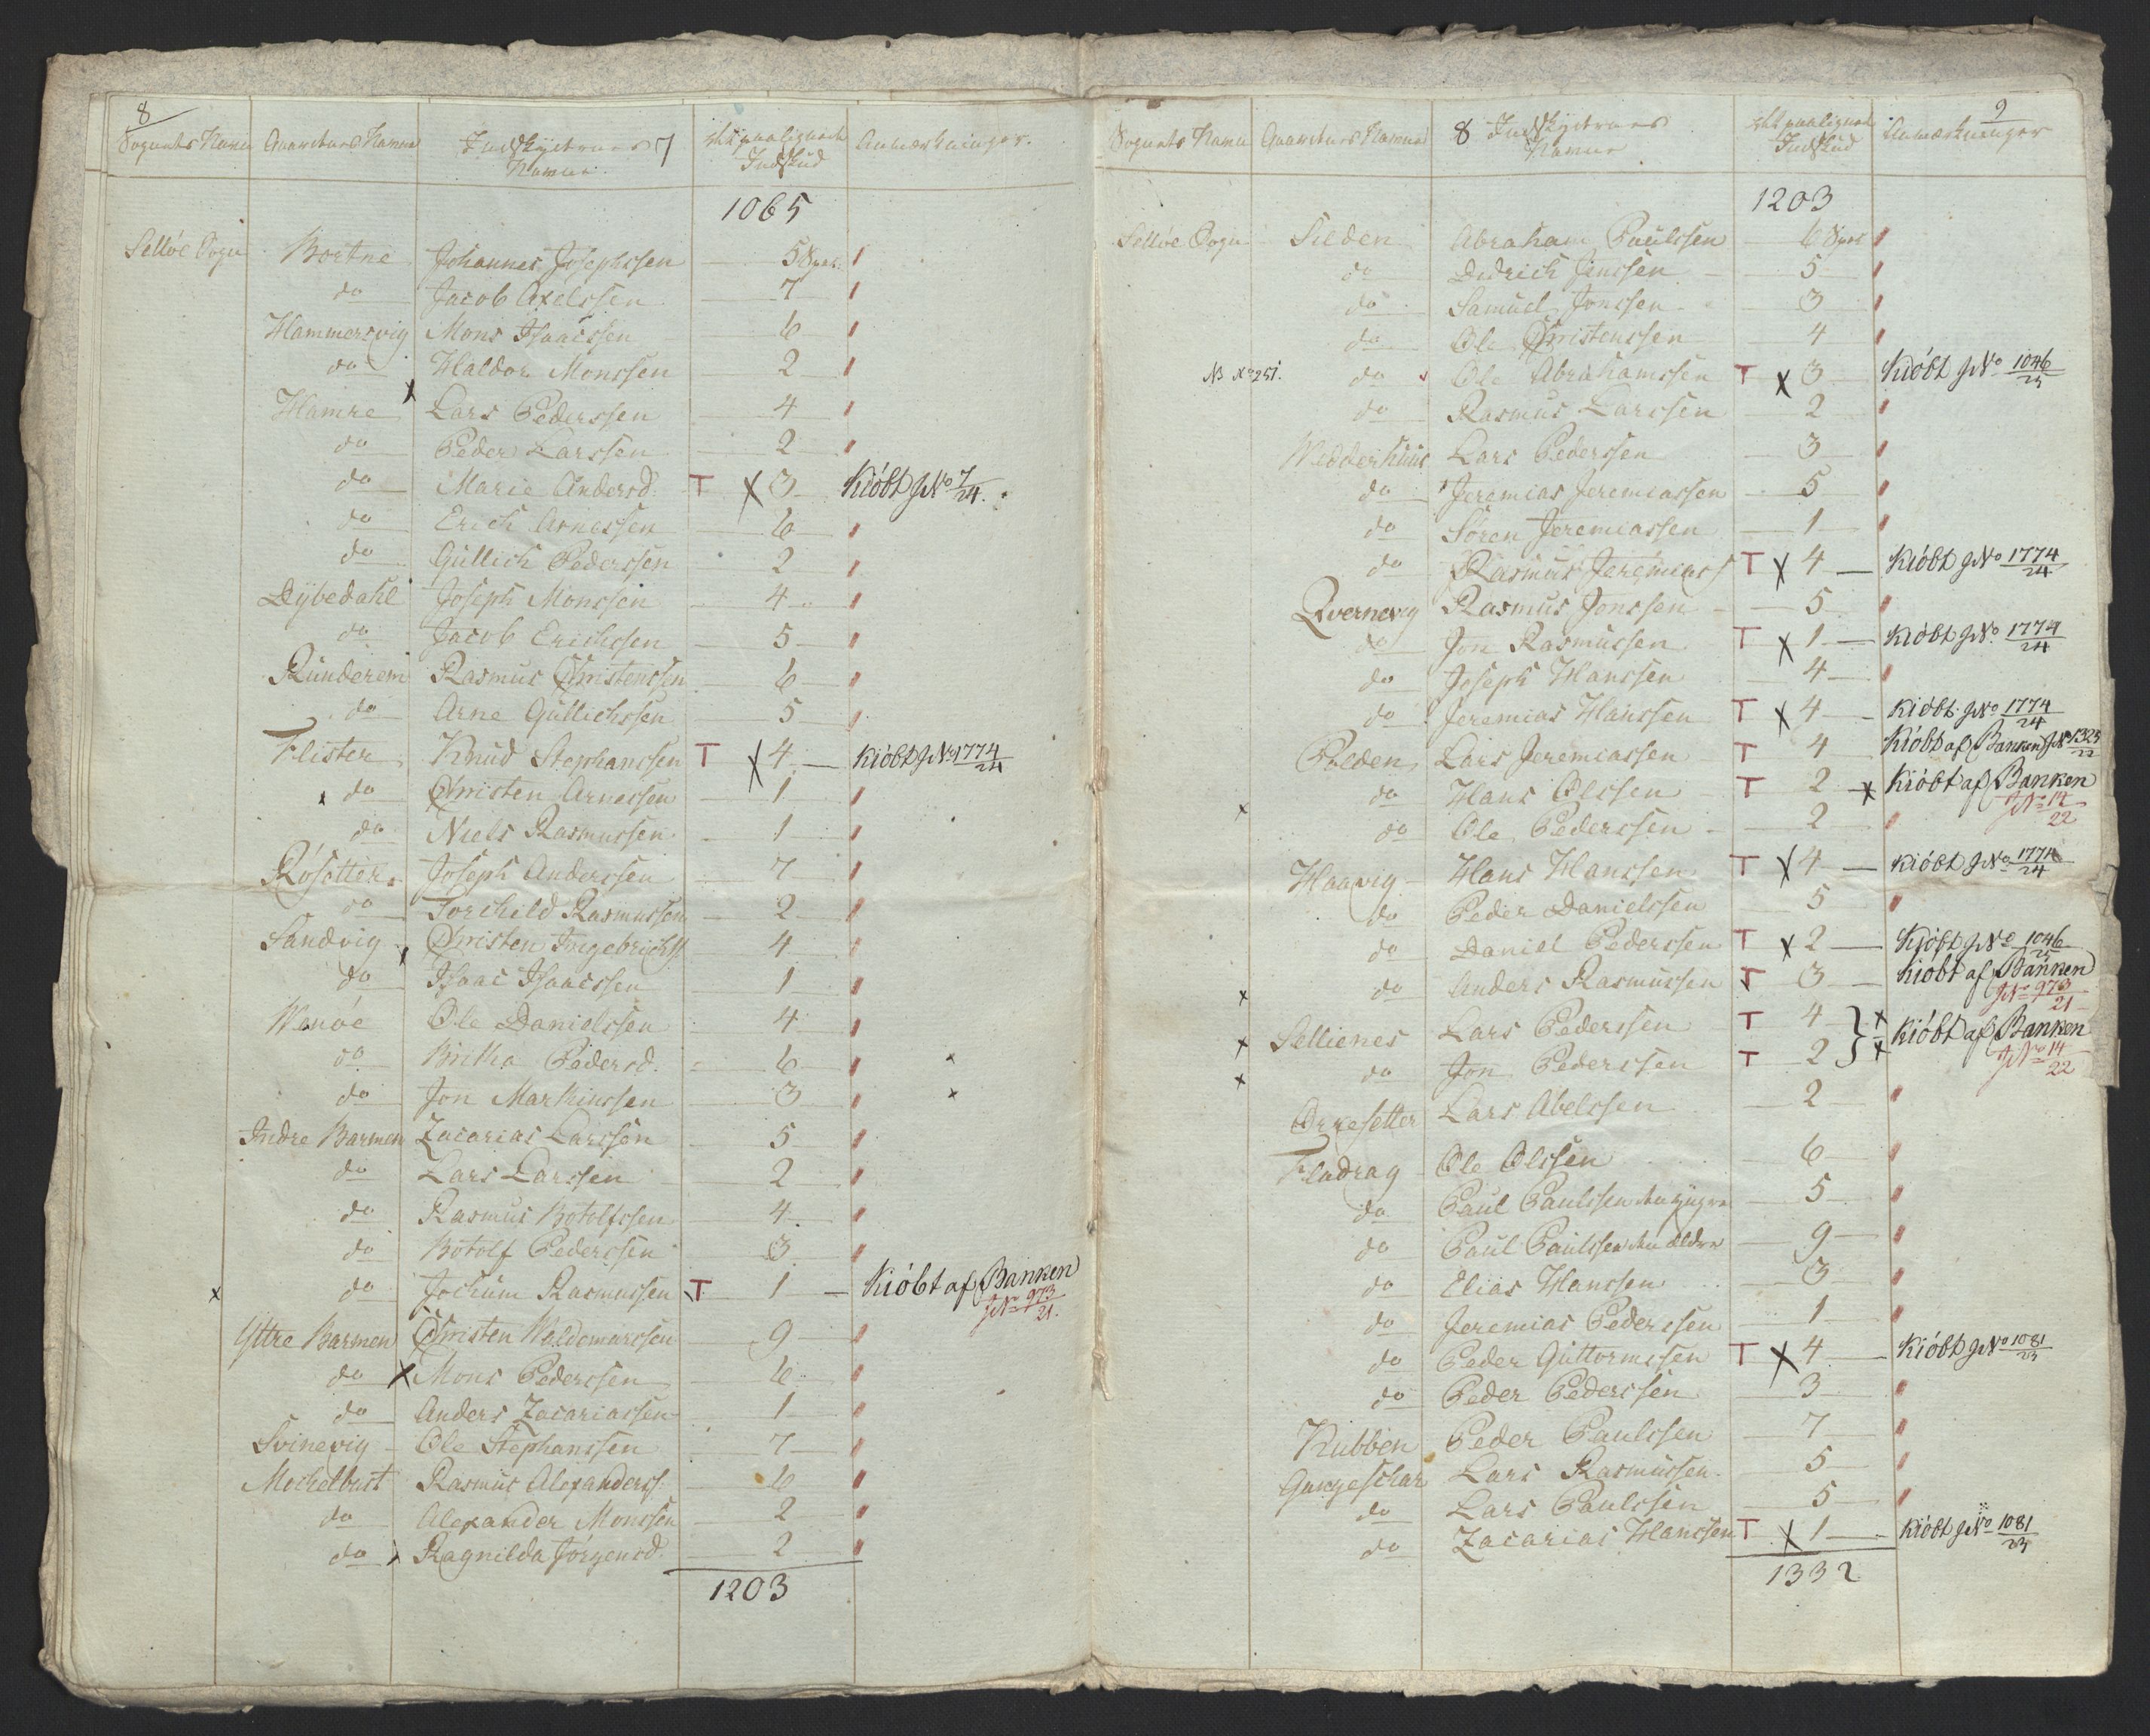 8
Sognets Navn Gaardenes Navne Indskydernes 7 Navne paalignede Indskud Anmærkninger.
1065
Selløe Sogn Bortne Johannes Josephssen 5 Spec. "
do Jacob Axelssen 7 "
Hammersvig Mons Isaacssen 6 "
do Haldor Monssen 2 "
Hamre x Lars Pederssen 4 "
do Peder Larssen 2 "
do Marie Andersd. T x 3 Kiöbt J No 7/24.
do Erich Arnessen 6 "
do Gullich Pederssen 2 "
Dybedahl Joseph Monssen 4 "
do Jacob Erichssen 5 "
Runderem Rasmus Christenssen 6 "
do Arne Gullichssen 5 "
Flister Knud Stephanssen T x 4 Kiöbt J No 1774/24
x do Christen Arnessen 1 "
do Niels Rasmussen 1 "
Rösetter Joseph Anderssen 7 "
do Torchild Rasmussen 2 "
Sandvig x Christen Ingebrichts 4 "
do Isaac Isaacssen 1 "
Wenöe Ole Danielssen 4 "
do Britha Pedersd. 6 " x
do Jon Markussen 3 " x
Indre Barmen Zacarias Larssen 5 "
do Lars Larssen 2 "
do Rasmus Botolfssen 4 "
do Botolf Pederssen 3 "
x do Jochum Rasmussen T 1 Kiöbt af Banken
J No 973/21.
Yttre Barmen Christen Waldemarssen 9 "
do x Mons Pederssen 6 "
do Anders Zacariassen 1 "
Svinevig Ole Stephanssen 7 "
Mechelbust Rasmus Alexanderss. 6 "
do Alexander Monssen 2 "
do x Ragnilda Jörgensd. 2 "
1203
9
Sognets Navn Gaardenes Navne 8 Indskydernes Navne paalignet Indskud Anmærkninger
1203
Selløe Sogn Silden Abraham Paulssen 6 Spec "
do Didrich Jenssen 5 "
do Samuel Jonssen 3 "
do Ole Christenssen 4 "
NB No 251. do Ole Abrahamssen T x 3 Kiöbt J No 1046/23
do Rasmus Larssen 2 "
Wedderhuus Lars Pederssen 3 "
do Jeremias Jeremiassen 5 "
do Sören Jeremiassen 1 "
do Rasmus Jeremiass T x 4 Kiöbt J No 1774/24
Qvernevig Rasmus Jonssen 5 "
do Jon Rasmussen T x 1 Kiöbt J No. 1774/24
do Joseph Hanssen 4 "
do Jeremias Hanssen T x 4 Kiöbt J No 1774/24
Polden Lars Jeremiassen T 4 Kiöbt af Banken J No 1325/22
do Hans Olssen T 2 x Kiöbt af Banken
J No 14/22
x do Ole Pederssen 2 "
Haavig Hans Hanssen T x 4 Kiöbt J No 1774/24
do Peder Danielssen 5 "
do Daniel Pederssen T x 2 Kjöbt J No 1046/23
x do Anders Rasmussen T 3 Kiöbt af Banken
J No 973/21
x Sellienes Lars Pederssen T 4 } x Kiöbt af Banken
x do Jon Pederssen T 2 } x J No 14/22
Orresetter Lars Abelssen 2 "
Fladrag Ole Olssen 6 "
do Paul Paulssen den yngre 5 "
do Paul Paulssen den ældre 9 "
do Elias Hanssen 3 "
do Jeremias Pederssen 1 "
do Peder Guttormssen T x 4 Kiöbt J No 1081/23
do Peder Pederssen 3 "
Kubben Peder Paulssen 7 "
Gangeschar Lars Rasmussen 5 "
do Lars Paulssen 5 "
do Zacarias Hanssen T x 1 Kiöbt J No 1081/23
1332